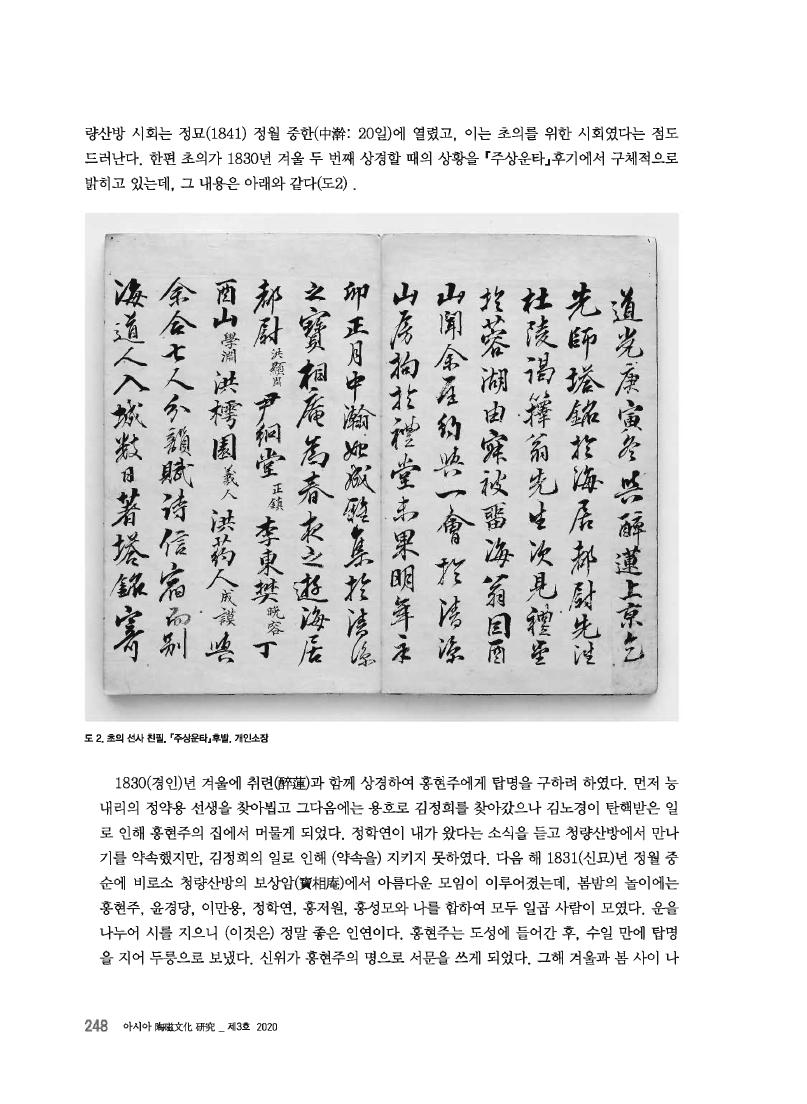 량산방 시회는 정묘(1841) 정월 중한(中澣: 20일)에 열렸고, 이는 초의를 위한 시회였다는 점도
드러난다. 한편 초의가 1830년 겨울 두 번째 상경할 때의 상황을 『주상운타』후기에서 구체적으로
밝히고 있는데, 그 내용은 아래와 같다(도2) .
道光庚寅冬與醉蓮上京乞
先師塔銘於海居都尉先泩
杜陵謁籜翁先生次見禮堂
於蓉湖由寀被留海翁因酉
山聞余在約與一會於清凉
山房拘於禮堂未果明年辛
卯正月中瀚始成雅集於清凉
之寶相庵爲春夜之遊海居
都尉洪顯周尹絅堂正鎮李東樊晩容丁
酉山學淵洪樗園羲人洪葯人成謨與
余合七人分韻賦詩信宿而別
海道人入城數日著塔銘寄
도 2. 초의 선사 친필, 『주상운타』후발, 개인소장
1830(경인)년 겨울에 취련(醉蓮)과 함께 상경하여 홍현주에게 탑명을 구하려 하였다. 먼저 능
내리의 정약용 선생을 찾아뵙고 그다음에는 용호로 김정희를 찾아갔으나 김노경이 탄핵받은 일
로 인해 홍현주의 집에서 머물게 되었다. 정학연이 내가 왔다는 소식을 듣고 청량산방에서 만나
기를 약속했지만, 김정희의 일로 인해 (약속을) 지키지 못하였다. 다음 해 1831(신묘)년 정월 중
순에 비로소 청량산방의 보상암(寶相庵)에서 아름다운 모임이 이루어졌는데, 봄밤의 놀이에는
홍현주, 윤경당, 이만용, 정학연, 홍저원, 홍성모와 나를 합하여 모두 일곱 사람이 모였다. 운을
나누어 시를 지으니 (이것은) 정말 좋은 인연이다. 홍현주는 도성에 들어간 후, 수일 만에 탑명
을 지어 두릉으로 보냈다. 신위가 홍현주의 명으로 서문을 쓰게 되었다. 그해 겨울과 봄 사이 나
248 아시아 陶磁文化 硏究 _ 제3호 2020